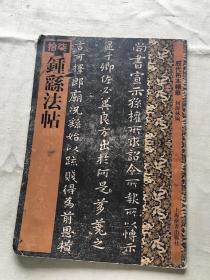 拾柒
鍾繇法帖
尚書宣示孫權所求詔令所報所以博示
逮于卿佐必冀良方出於阿是芻蕘之
言可擇郎廟況繇始以疏賤得為前恩橫
歷代拓本精華
上海辭書出版社